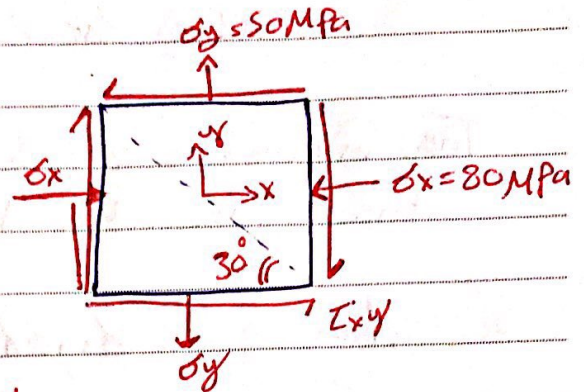 σy = 50MPa
y
σx
x
σx = 80MPa
30°
τxy
σy